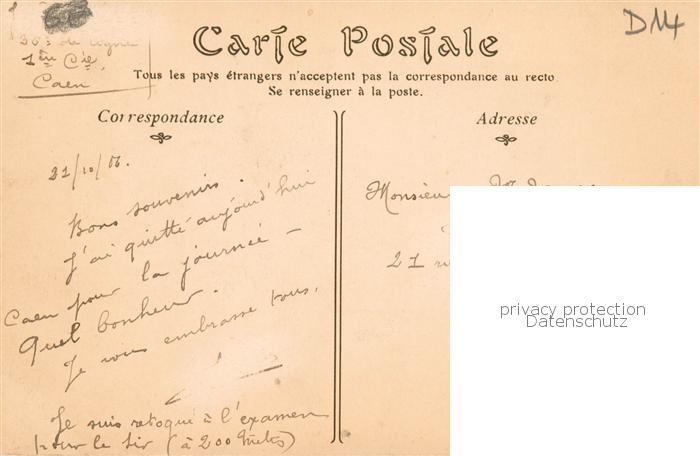 D14
36e de ligne
1ère Cie
Caen
Carte Postale
Tous les pays étrangers n'acceptent pas la correspondance au recto
Se renseigner à la poste.
Correspondance
21/10/06.
Bons souvenirs.
J'ai quitté aujourd'hui
Caen pour la journée –
Quel bonheur.
Je vous embrasse tous.
Je suis retoqué à l'examen
pour le tir (à 200 mètres)
Adresse
Monsieur
21
privacy protection
Datenschutz